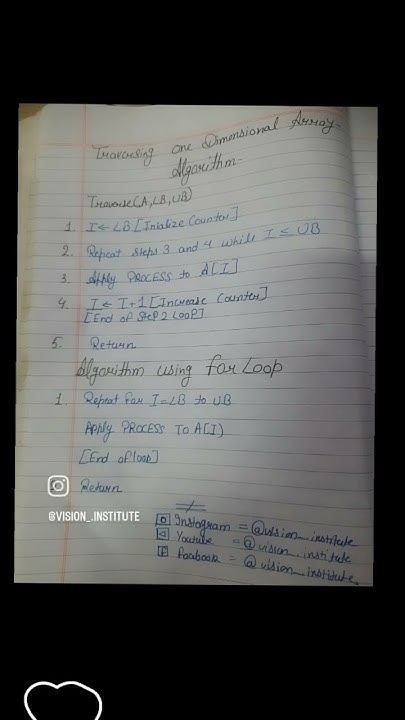 Traversing one Dimensional Array
Algorithm
Traverse(A,LB,UB)
1. I ← LB [Inialize Counter]
2. Repeat Steps 3 and 4 while I ≤ UB
3. Apply PROCESS to A[I]
4. I ← I+1 [Increase Counter]
[End of Step 2 Loop]
5. Return
Algorithm using for Loop
1. Repeat for I=LB to UB
Apply PROCESS To A[I)
[End of loop]
Return
@VISION_.INSTITUTE
Instagram = @vision_.institute
Youtube = @vision_.institute
Facebook = @vision_institute